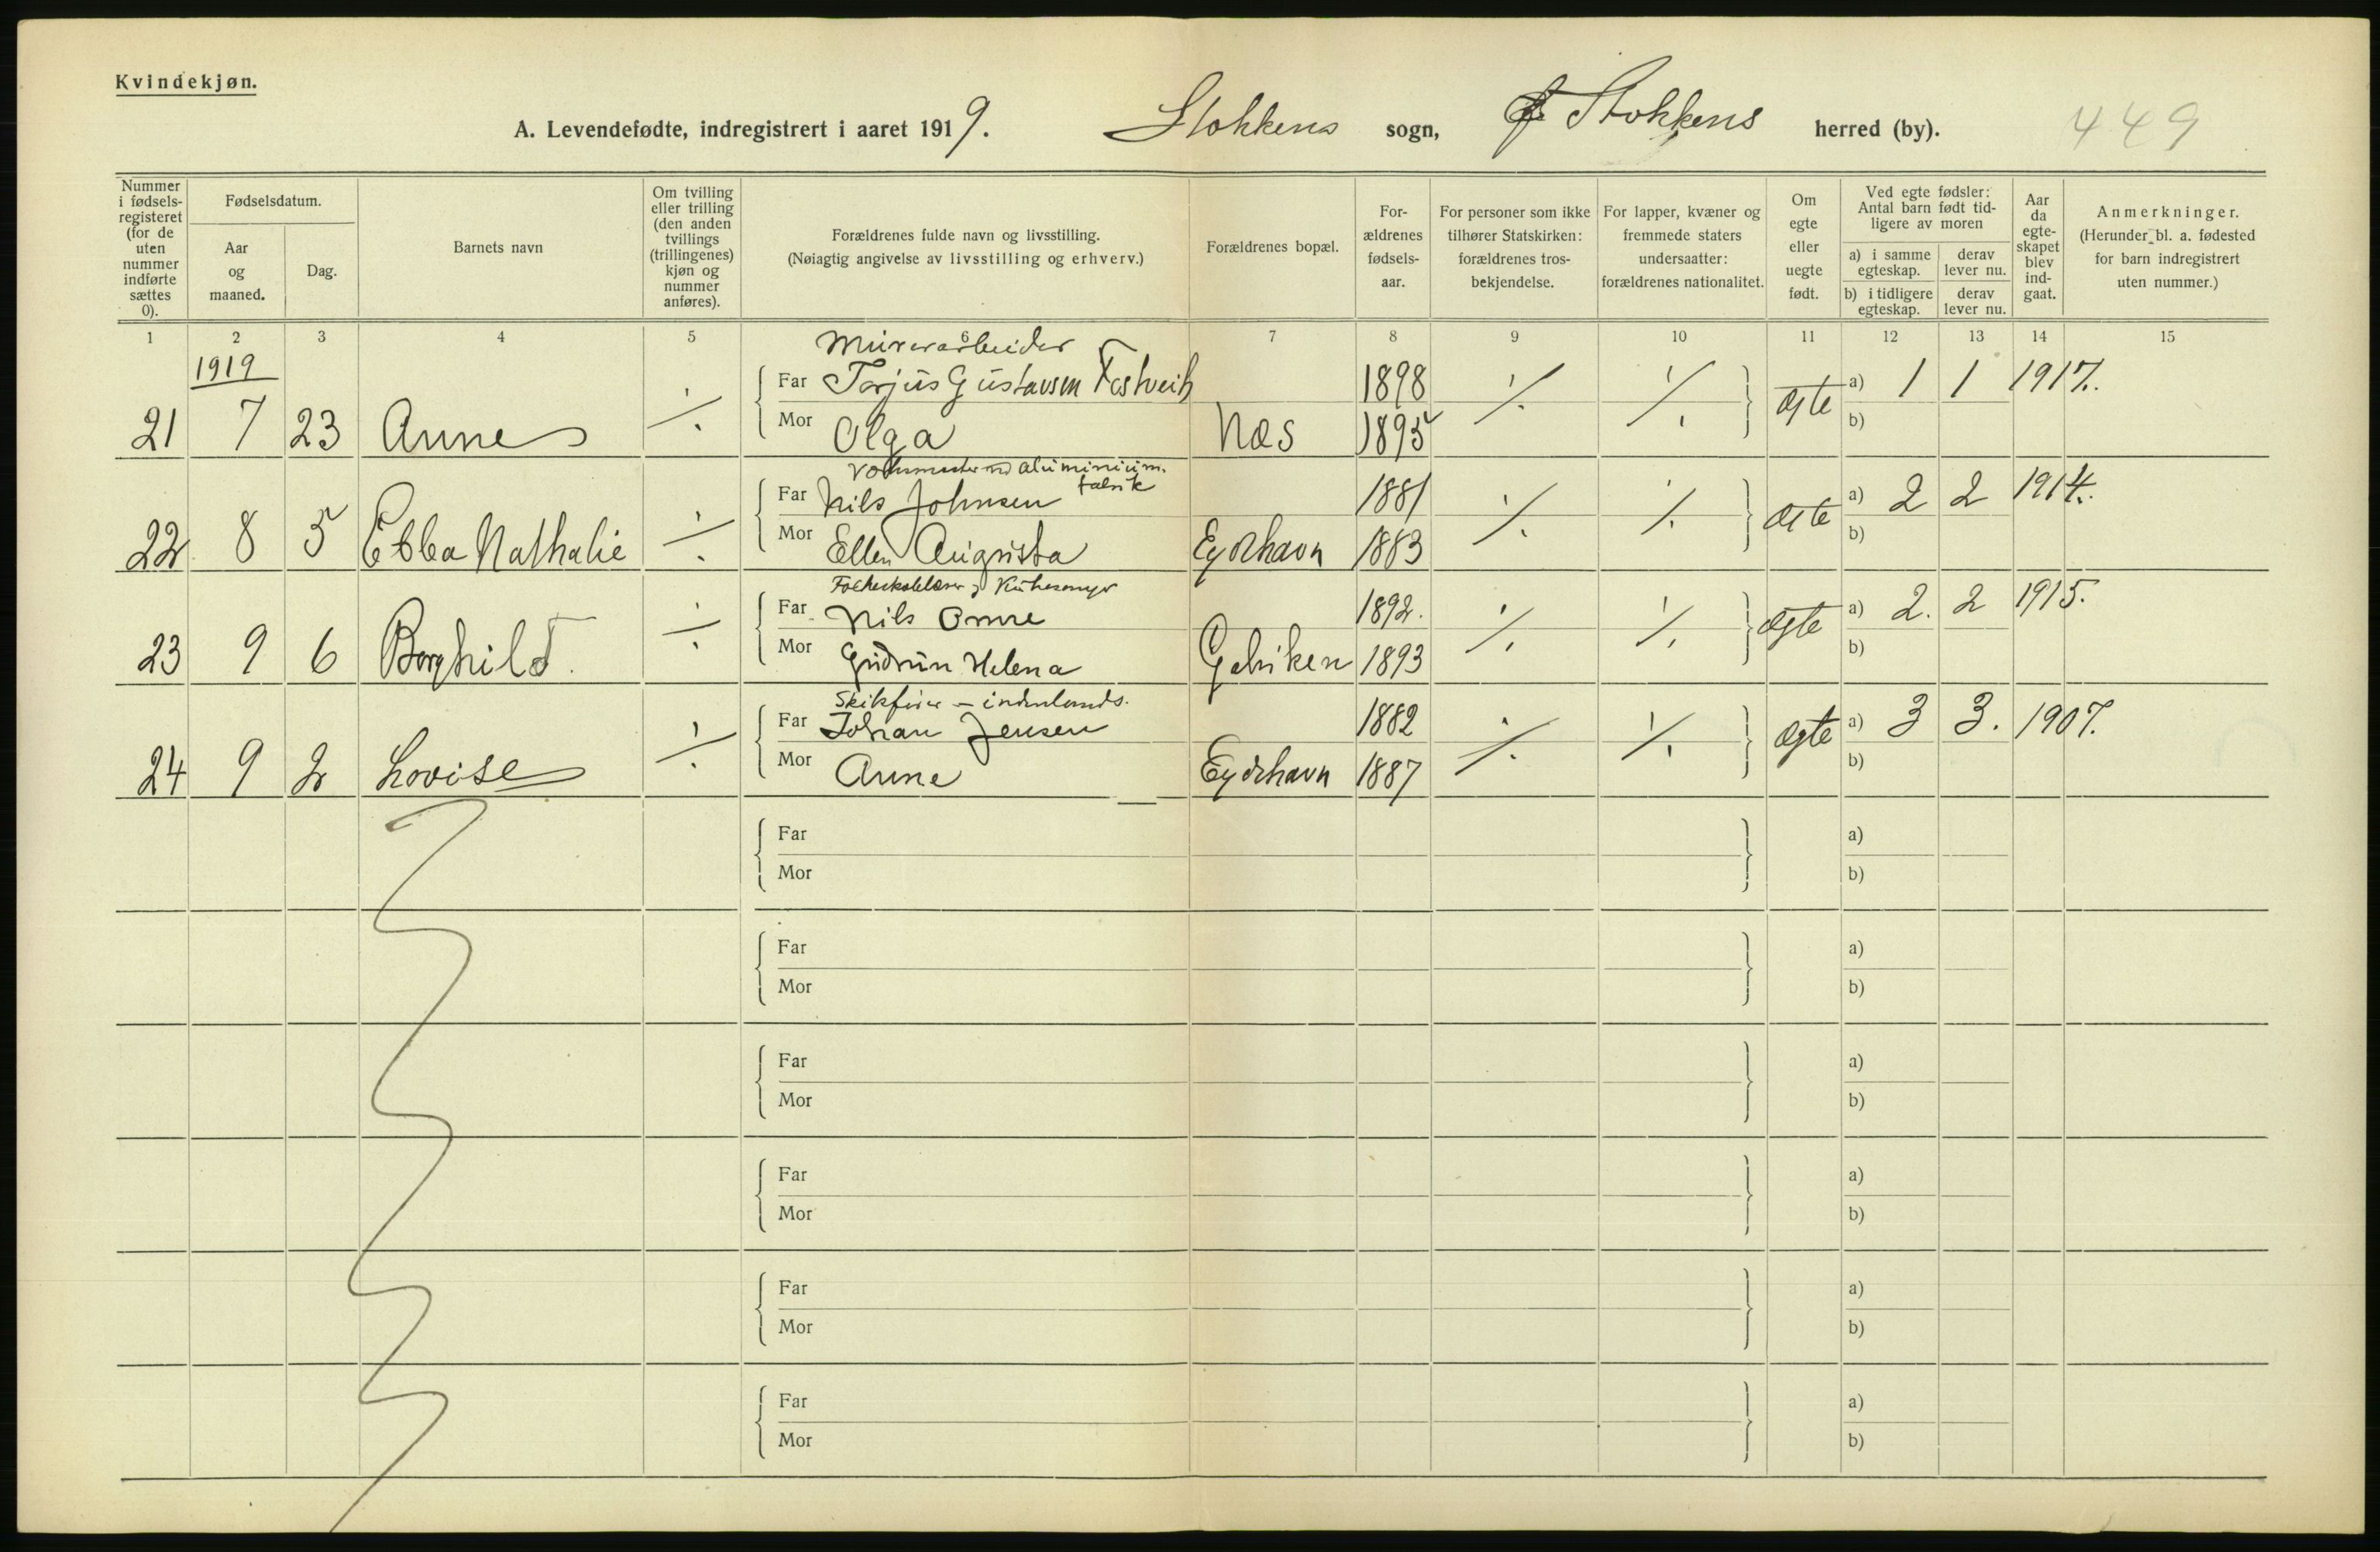 Kvindekjøn.
A. Levendefødte, indregistrert i aaret 1919. Stokkens sogn, Stokkens herred (by). 449
Nummer i fødselsregisteret (for de uten nummer indførte sættes 0).
Fødselsdatum.
Aar og maaned.
Dag.
Barnets navn
Om tvilling eller trilling (den anden tvillings (trillingenes) kjøn og nummer anføres).
Forældrenes fulde navn og livsstilling.
(Nøiagtig angivelse av livsstilling og erhverv.)
Forældrenes bopæl.
Forældrenes fødselsaar.
For personer som ikke tilhører Statskirken: forældrenes trosbekjendelse.
For lapper, kvæner og fremmede staters undersaatter: forældrenes nationalitet.
Om egte eller uegte født.
Ved egte fødsler: Antal barn født tidligere av moren
a) i samme egteskap.
derav lever nu.
b) i tidligere egteskap.
derav lever nu.
Aar da egteskapet blev indgaat.
Anmerkninger.
(Herunder bl. a. fødested for barn indregistrert uten nummer.)
1 2 3 4 5 6 7 8 9 10 11 12 13 14 15
1919
Murerarbeider
Far Torjus Gustavsen 1898 ./. ./. a) 1 1 1917.
21 7 23 Anne ÷ Mor Olga Næs 1895 ægte b)
aluminium.
fabrik
Far Nils Johnsen 1881 ./. ./. a) 2 2 1914.
22 8 5 Ebba Nathalie ÷ Mor Ellen Augusta Eydehavn 1883 ægte b)
Far Nils Omre 1892. ./. ./. a) 2. 2 1915.
23 9 6 Borghild. ÷ Mor Gudrun Helena 1893 ægte b)
– indenlands.
Far Johan Jensen 1882 ./. ./. a) 3 3. 1907.
24 9 2 Lovise ÷ Mor Anne Eydehavn 1887 ægte b)
Far a)
Mor b)
Far a)
Mor b)
Far a)
Mor b)
Far a)
Mor b)
Far a)
Mor b)
Far a)
Mor b)